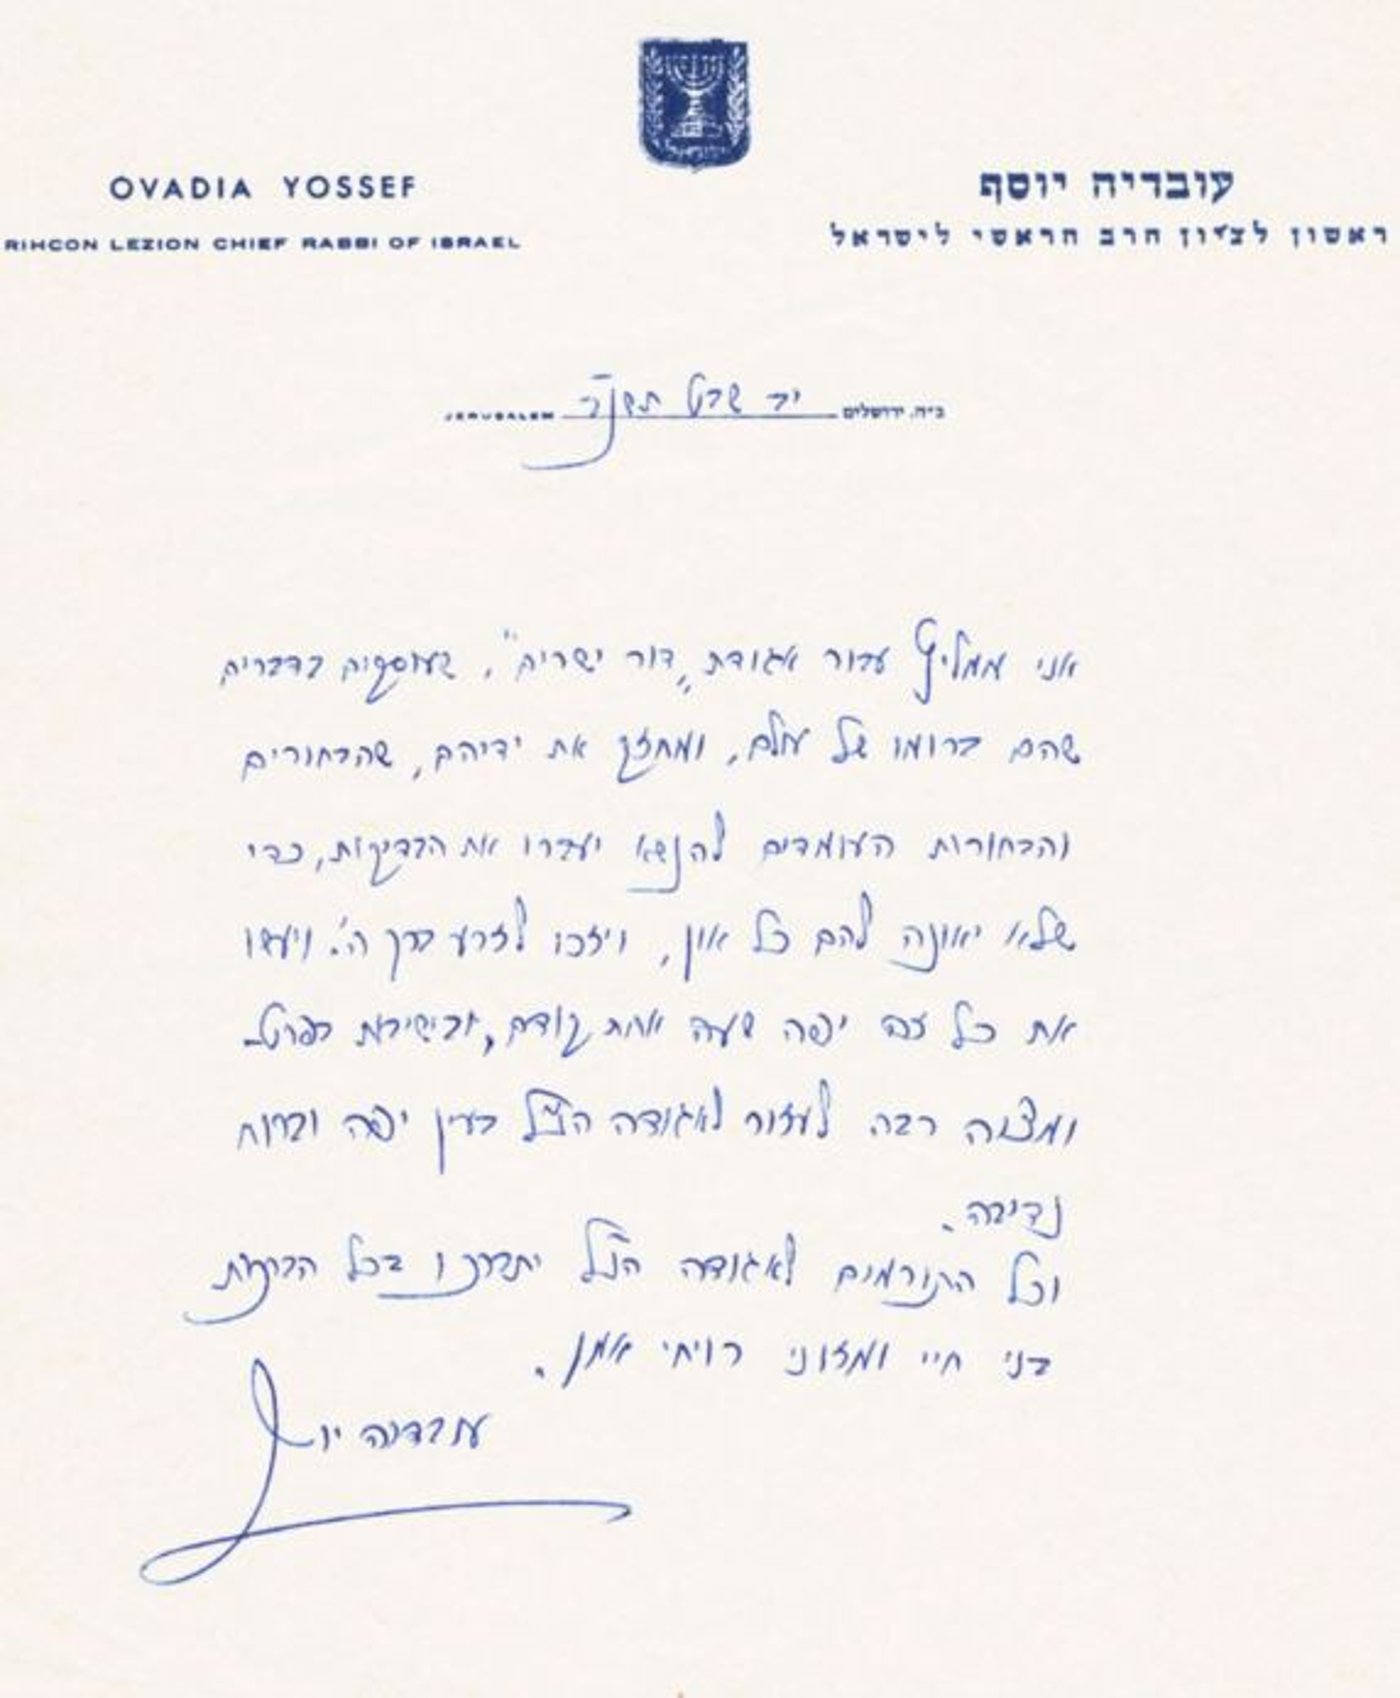 ישראל
OVADIA YOSSEF
עובדיה יוסף
RIHCON LEZION CHIEF RABBI OF ISRAEL
ראשון לציון הרב הראשי לישראל
ב״ה, ירושלים יב שבט JERUSALEM
אני ממליץ עבור אגודת „דור ישרים", שעוסקים בדברים
שהם ברומו של עולם, ומחזק את ידיהם, שהבחורים
והבחורות העומדים להנשא יעברו את הבדיקות, כדי
שלא יאונה להם כל און, ויזכו לזרע ברך ה'. ויעשו
את כל זה יפה שעה אחת קודם, ובישיבות בפרט.
ומצוה רבה לעזור לאגודה הנ"ל בעין יפה וברוח
נדיבה.
וכל התורמים לאגודה הנ"ל יתברכו בכל הברכות
בני חיי ומזוני רויחי אמן.
עובדיה יוסף